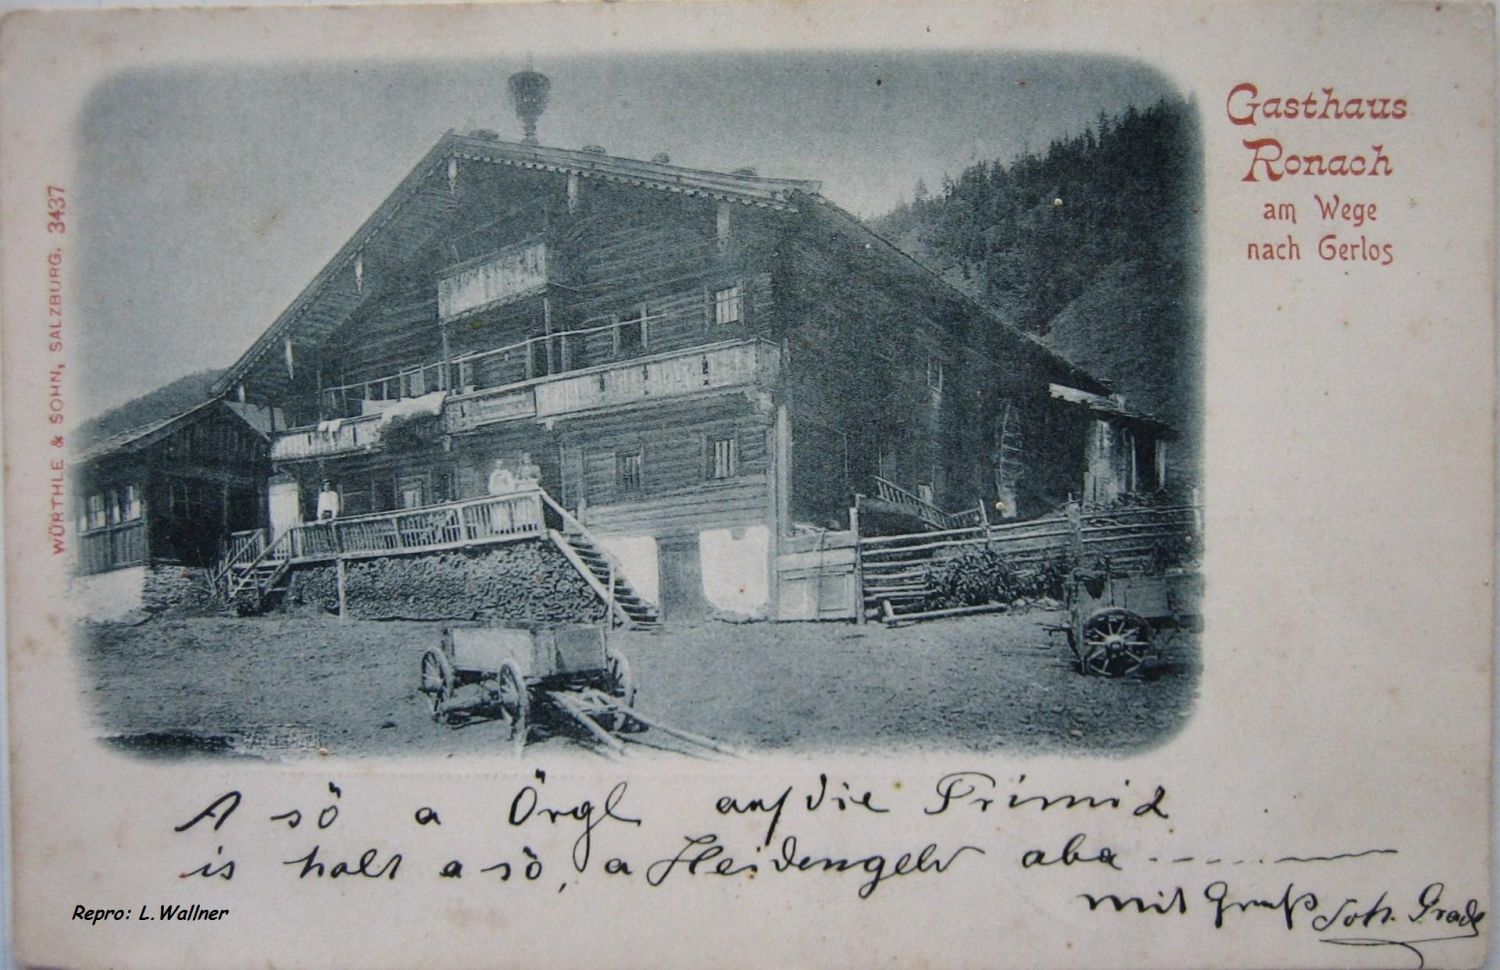 Gasthaus
Ronach
am Wege
nach Gerlos
WÜRTHLE & SOHN, SALZBURG. 3437
A sö a Örgl auf die
is halt a sö, a Heidengeld aba
mit Gruß Joh.
Repro: L. Wallner